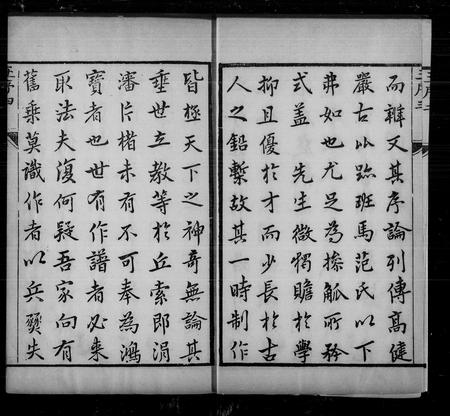 而辯又其序論列傳高健
嚴古以跡班馬范氏以下
弗如也尤足為操觚所矜
式蓋 先生微獨贍於學
抑且優於才而少長於古
人之鉛槧故其一時制作
皆極天下之神奇無論其
垂世立教等於丘索郎涓
瀋片楮未有不可奉為鴻
寶者也世有作譜者必來
取法夫復何疑吾家向有
舊乘莫識作者以兵燹失